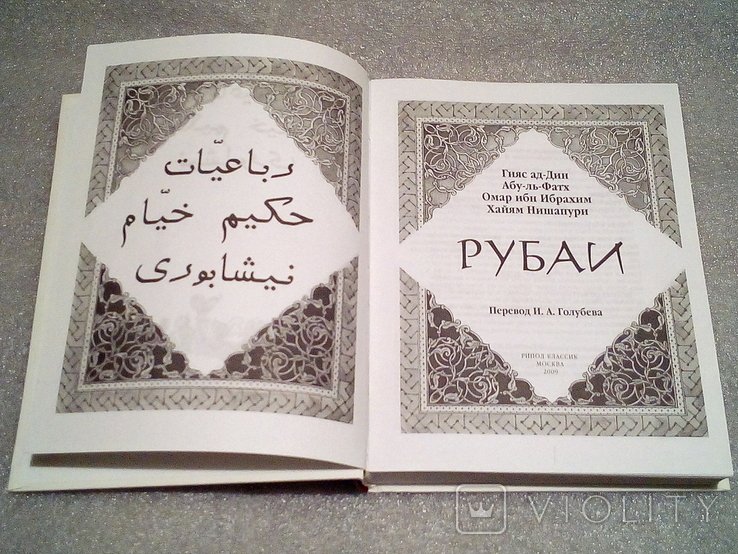 رباعيّات
حكيم خيّام
نيشابورى
Гияс ад-Дин
Абу-ль-Фатх
Омар ибн Ибрахим
Хайям Нишапури
РУБАИ
Перевод И. А. Голубева
РИПОЛ КЛАССИК
МОСКВА
2009
VIOLITY